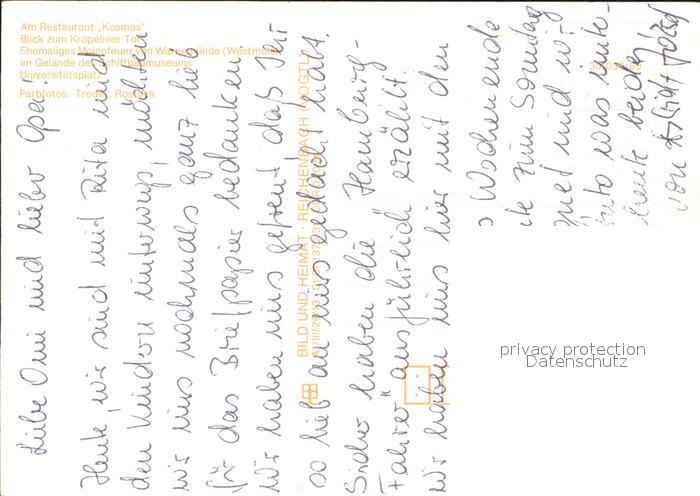 Am Restaurant „Kosmos“
Blick zum Kröpeliner Tor
Ehemaliges Molenfeuer von Warnemünde (Westmole)
im Gelände des Schiffbaumuseums
Universitätsplatz
Farbfotos: Treder, Rostock
BILD UND HEIMAT · REICHENBACH (VOGTL)
Liebe Omi und lieber Opa!
Heute, wir sind mit Tuta und
den Kindern unterwegs, möchten
wir uns nochmals ganz lieb
für das Briefpapier bedanken.
Wir haben uns gefreut daß Ihr
so lieb an uns gedacht habt.
Sicher haben die "Hamburg-
Fahrer" ausführlich erzählt.
Wir haben uns hier mit den
Wochenende
zum Sonntag
und wi
was unte-
heute beiden
von
privacy protection
Datenschutz